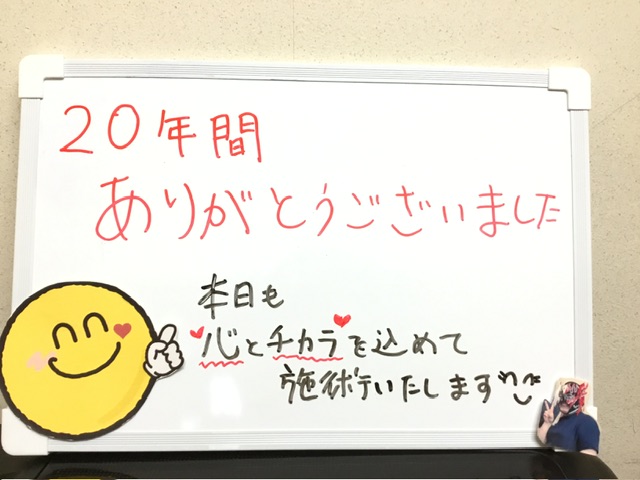 20年間
ありがとうございました
本日も
心とチカラを込めて
施術いたします